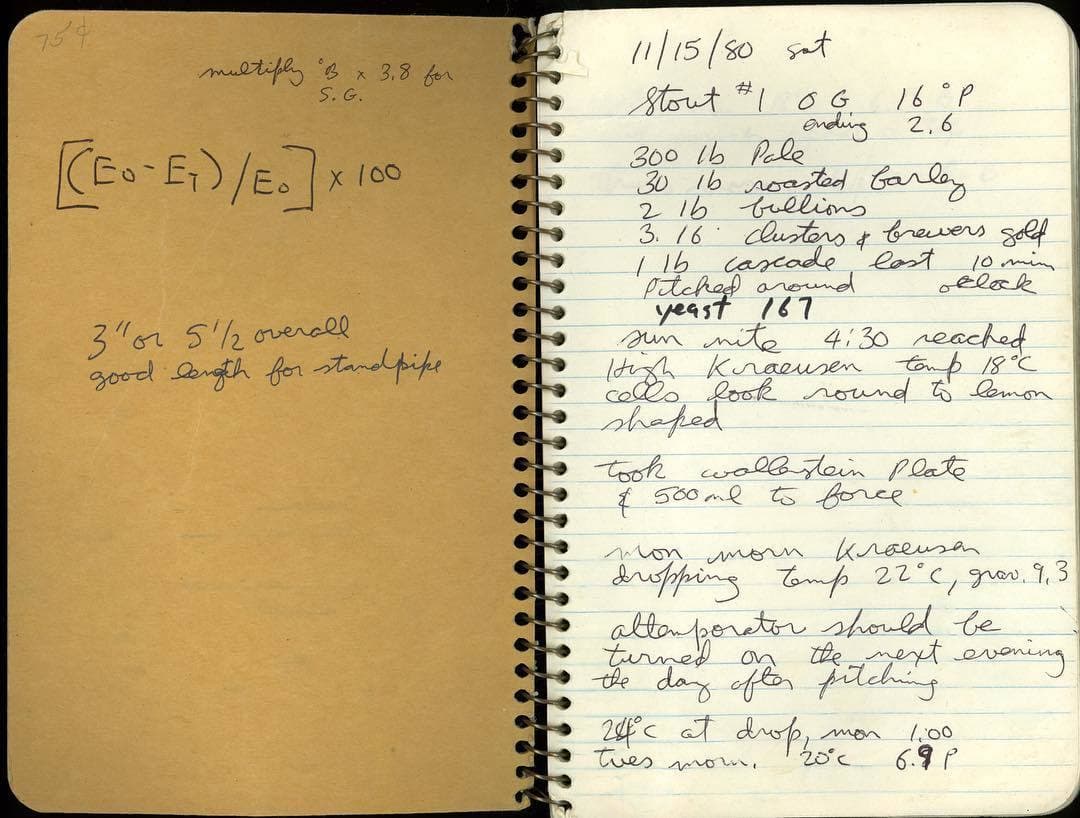 75¢
multiply °B x 3.8 for
S.G.
[(E0-ET)/E0] x 100
3" or 5 1/2 overall
good length for standpipe
11/15/80 sat
Stout #1 OG 16°P
ending 2.6
300 lb Pale
30 lb roasted barley
2 lb bullions
3. lb clusters & brewers gold
1 lb cascade last 10 min
Pitched around oclock
yeast 167
sun nite 4:30 reached
High Kraeusen temp 18°C
cells look round to lemon
shaped
took wallerstein Plate
& 500 ml to force
mon morn Kraeusen
dropping temp 22°C, grav. 9.3
attemporator should be
turned on the next evening
the day after pitching
24°C at drop, mon 1:00
tues morn. 20°C 6.9 P